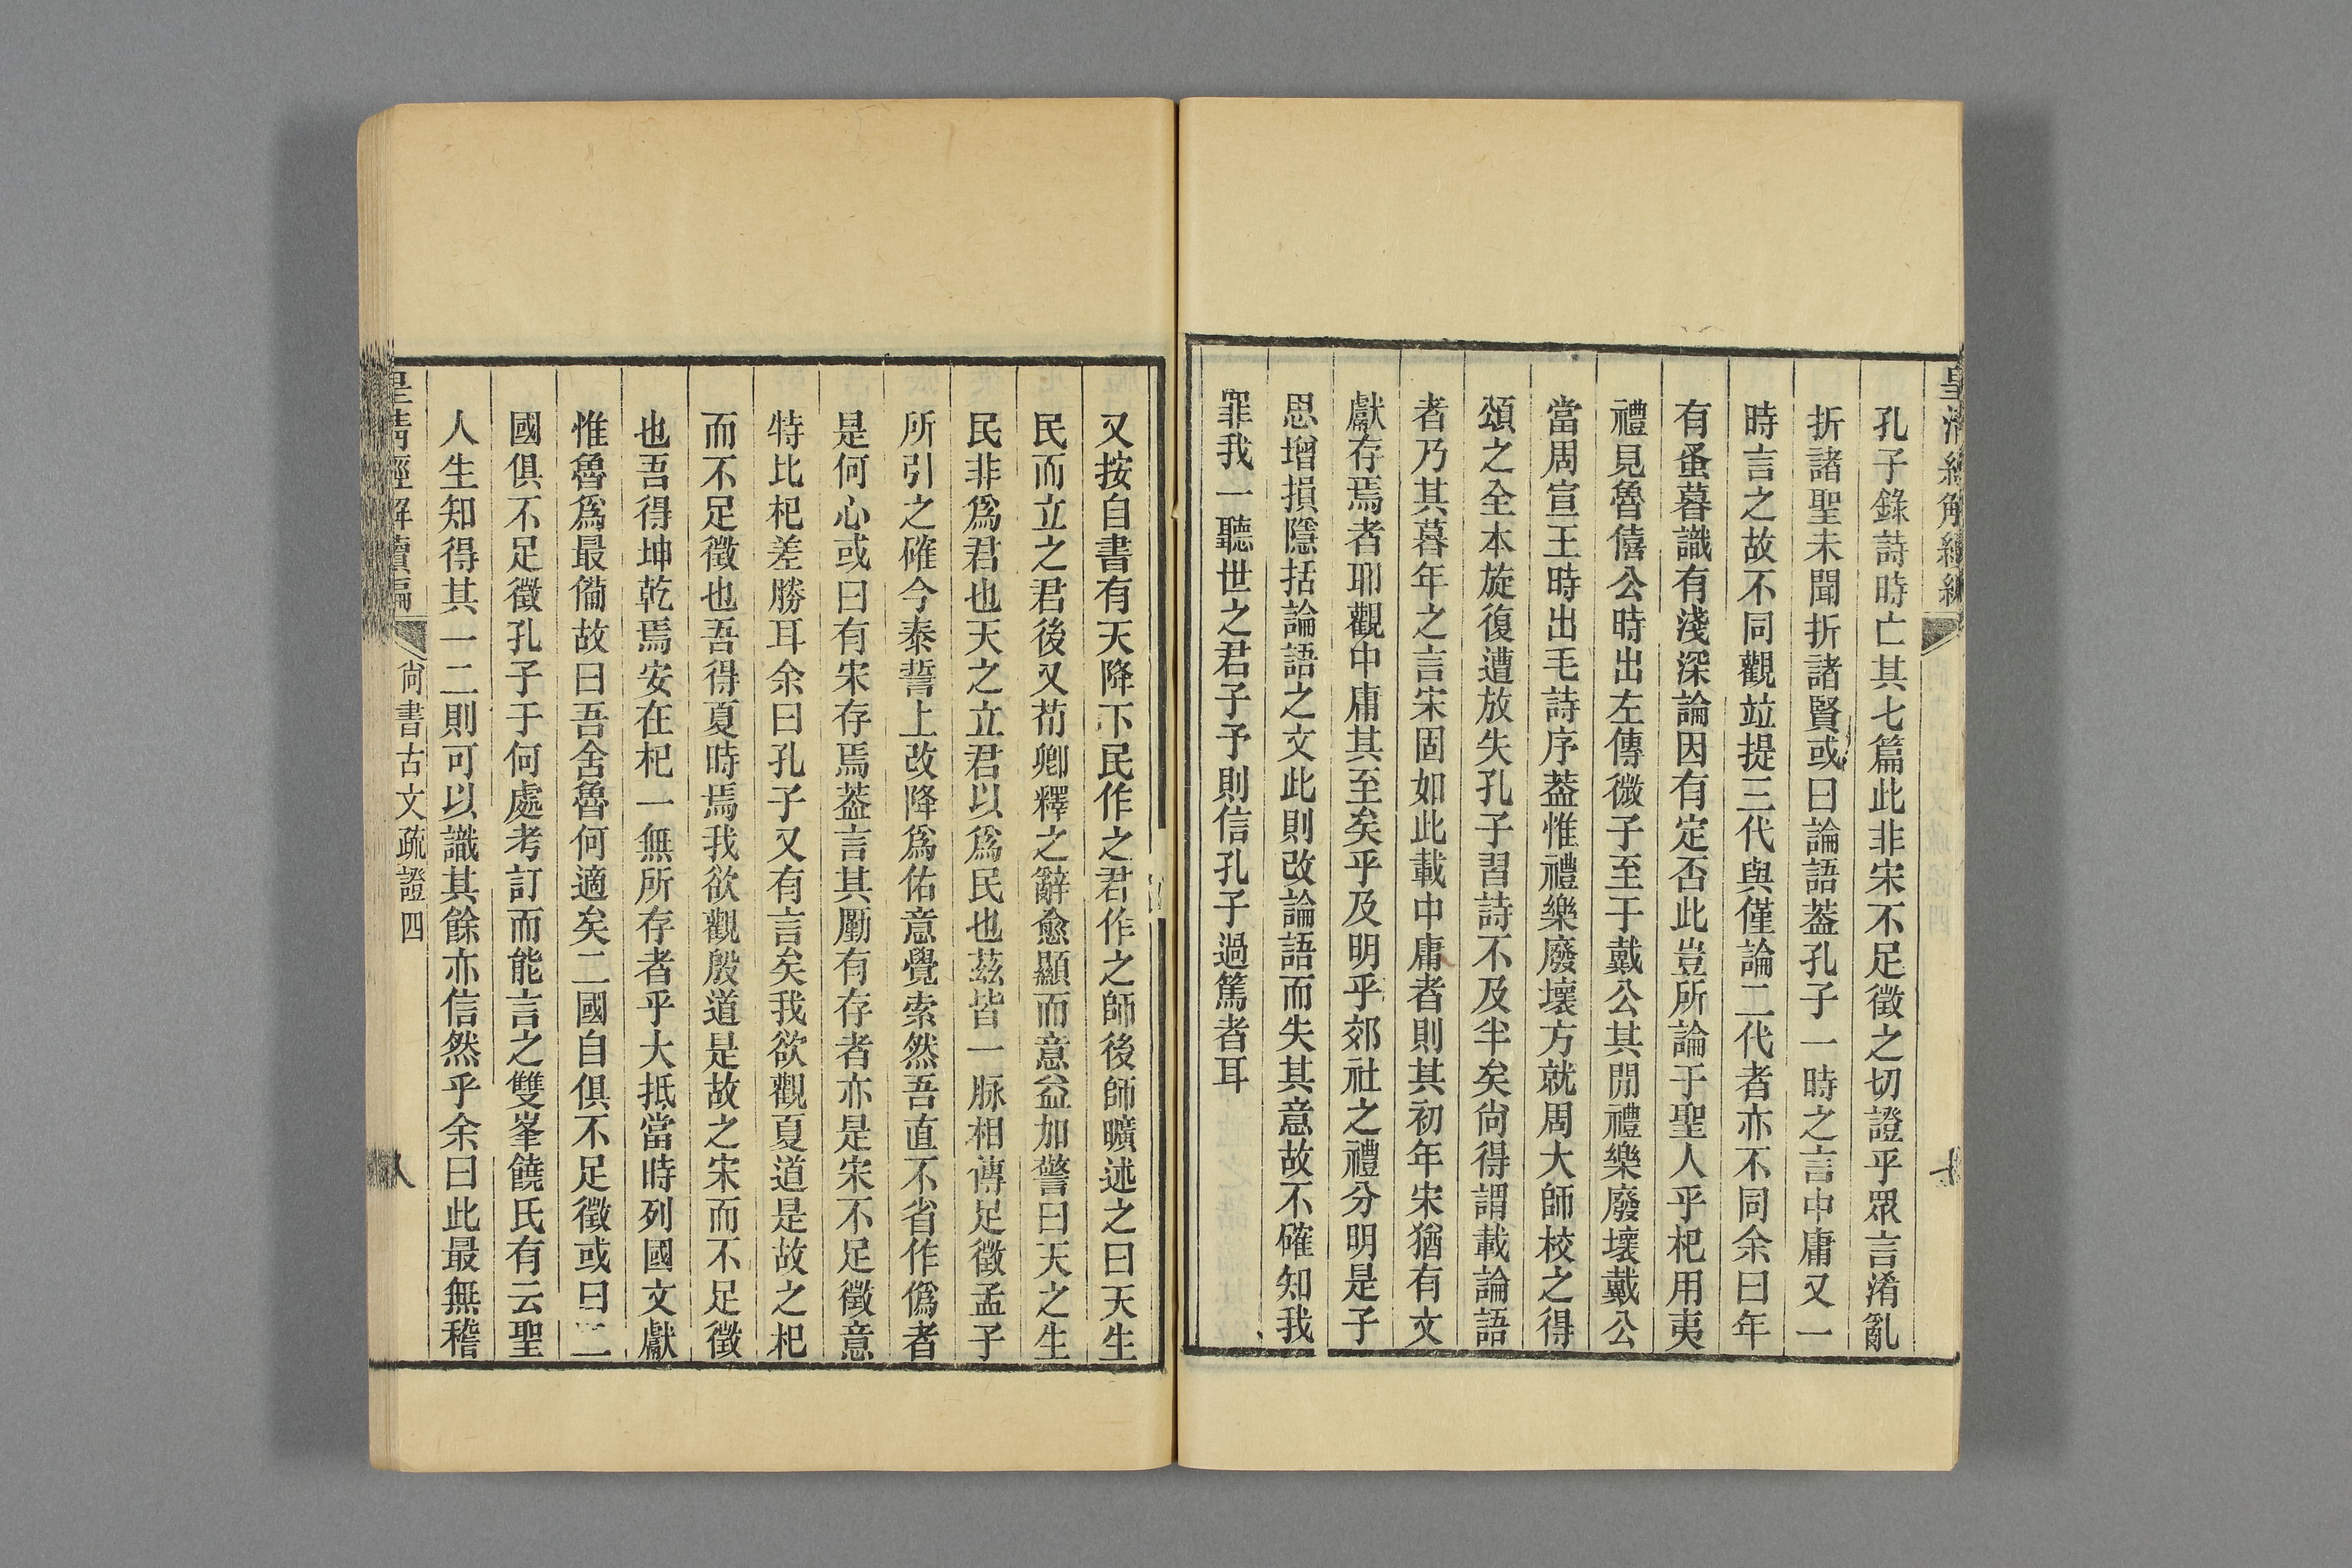 皇清經解續編
孔子錄詩時亡其七篇此非宋不足徵之切證乎眾言淆亂
折諸聖未聞折諸賢或曰論語葢孔子一時之言中庸又一
時言之故不同觀竝提三代與僅論二代者亦不同余曰年
有蚤暮識有淺深論因有定否此豈所論于聖人乎杞用夷
禮見魯僖公時出左傳微子至于戴公其閒禮樂廢壞戴公
當周宣王時出毛詩序葢惟禮樂廢壞方就周大師校之得
頌之全本旋復遭放失孔子習詩不及半矣尙得謂載論語
者乃其暮年之言宋固如此載中庸者則其初年宋猶有文
獻存焉者耶觀中庸其至矣乎及明乎郊社之禮分明是子
思增損隱括論語之文此則改論語而失其意故不確知我
罪我一聽世之君子予則信孔子過篤者耳
又按自書有天降下民作之君作之師後師曠述之曰天生
民而立之君後又荀卿釋之辭愈顯而意益加警曰天之生
民非爲君也天之立君以爲民也茲皆一脉相傳足徵孟子
所引之確今泰誓上改降爲佑意覺索然吾直不省作僞者
是何心或曰有宋存焉葢言其厪有存者亦是宋不足徵意
特比杞差勝耳余曰孔子又有言矣我欲觀夏道是故之杞
而不足徵也吾得夏時焉我欲觀殷道是故之宋而不足徵
也吾得坤乾焉安在杞一無所存者乎大抵當時列國文獻
惟魯爲最僃故曰吾舍魯何適矣二國自俱不足徵或曰二
國俱不足徵孔子于何處考訂而能言之雙峯饒氏有云聖
人生知得其一二則可以識其餘亦信然乎余曰此最無稽
皇清經解續編 尙書古文疏證四 八